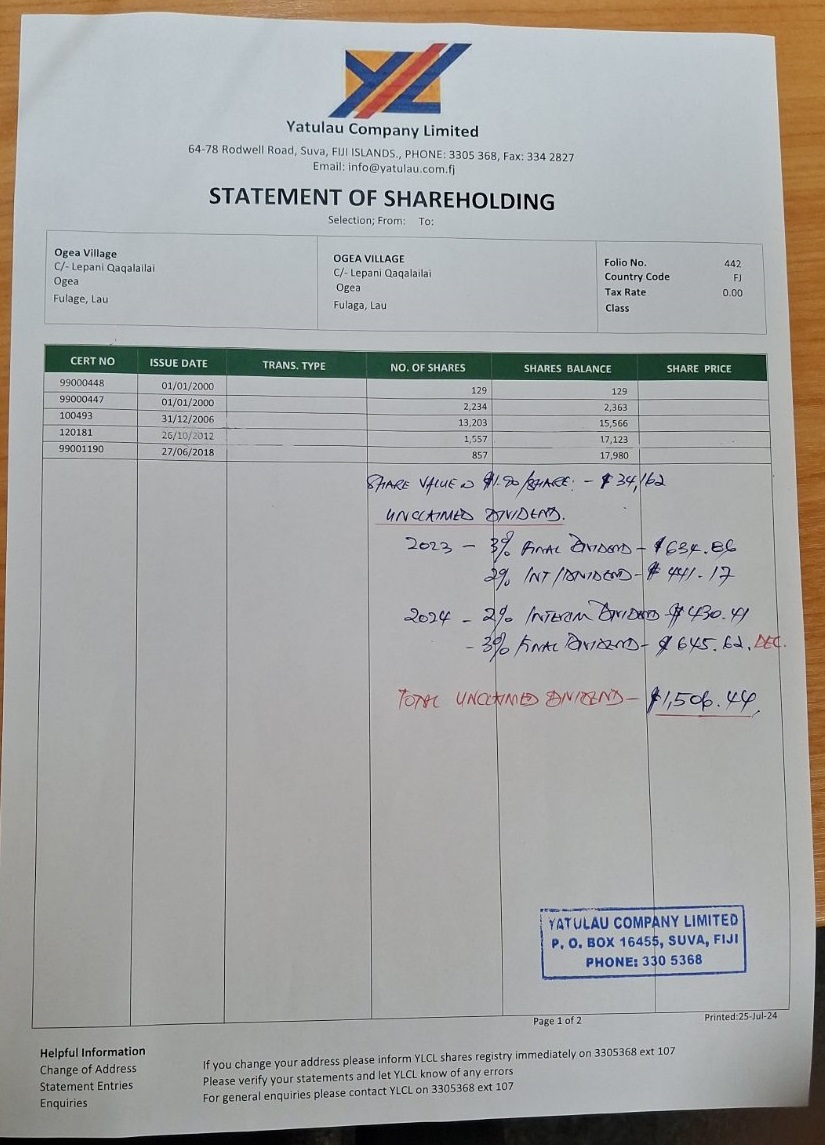 YL
Yatulau Company Limited
64-78 Rodwell Road, Suva, FIJI ISLANDS., PHONE: 3305 368, Fax: 334 2827
Email: info@yatulau.com.fj
STATEMENT OF SHAREHOLDING
Selection; From: To:
Ogea Village
C/- Lepani Qaqalailai
Ogea
Fulage, Lau
OGEA VILLAGE
C/- Lepani Qaqalailai
Ogea
Fulaga, Lau
Folio No. 442
Country Code FJ
Tax Rate 0.00
Class
CERT NO ISSUE DATE TRANS. TYPE NO. OF SHARES SHARES BALANCE SHARE PRICE
99000448 01/01/2000 129 129
99000447 01/01/2000 2,234 2,363
100493 31/12/2006 13,203 15,566
120181 26/10/2012 1,557 17,123
99001190 27/06/2018 857 17,980
SHARE VALUE @ $1.90/SHARE: - $34,162
UNCLAIMED DIVIDEND.
2023 - 3% FINAL DIVIDEND - $634.86
2% INT/DIVIDEND - $441.17
2024 - 2% INTERIM DIVIDEND - $430.41
- 3% FINAL DIVIDEND - $645.62. DEC.
TOTAL UNCLAIMED DIVIDEND - $1,506.44
YATULAU COMPANY LIMITED
P. O. BOX 16455, SUVA, FIJI
PHONE: 330 5368
Page 1 of 2 Printed:25-Jul-24
Helpful Information
Change of Address If you change your address please inform YLCL shares registry immediately on 3305368 ext 107
Statement Entries Please verify your statements and let YLCL know of any errors
Enquiries For general enquiries please contact YLCL on 3305368 ext 107